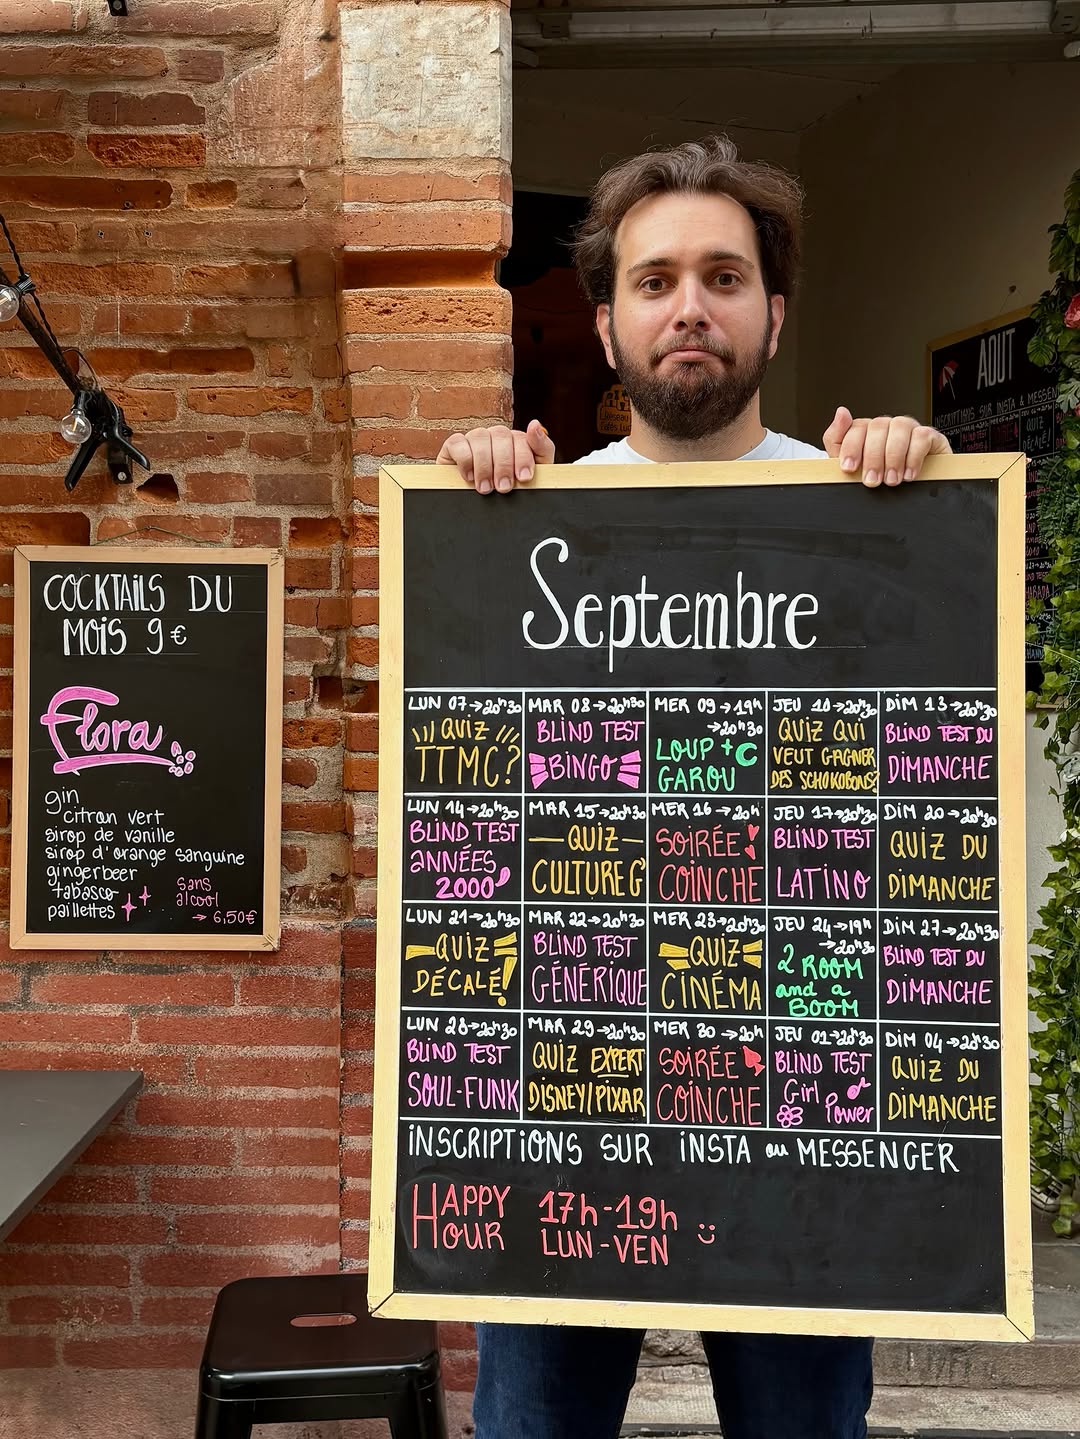 COCKTAILS DU
MOIS 9€
Flora
gin
citron vert
sirop de vanille
sirop d'orange sanguine
gingerbeer
tabasco
paillettes
sans
alcool
→ 6,50€
AOUT
INSCRIPTIONS SUR INSTA & MESSEN
QUIZ
DÉCALÉ!
Septembre
LUN 07→20h30
QUIZ
TTMC?
MAR 08→20h30
BLIND TEST
BINGO
MER 09→19h
→20h30
LOUP +
GAROU
JEU 10→20h30
QUIZ QUI
VEUT GAGNER
DES SCHOKOBONS?
DIM 13→20h30
BLIND TEST DU
DIMANCHE
LUN 14→20h30
BLIND TEST
ANNÉES
2000
MAR 15→20h30
QUIZ
CULTURE G
MER 16→20h
SOIRÉE
COINCHE
JEU 17→20h30
BLIND TEST
LATINO
DIM 20→20h30
QUIZ DU
DIMANCHE
LUN 21→20h30
QUIZ
DÉCALÉ!
MAR 22→20h30
BLIND TEST
GÉNÉRIQUE
MER 23→20h30
QUIZ
CINÉMA
JEU 24→19h
→20h30
2 ROOM
and a
BOOM
DIM 27→20h30
BLIND TEST DU
DIMANCHE
LUN 28→20h30
BLIND TEST
SOUL-FUNK
MAR 29→20h30
QUIZ EXPERT
DISNEY/PIXAR
MER 30→20h
SOIRÉE
COINCHE
JEU 01→20h30
BLIND TEST
Girl
Power
DIM 04→20h30
QUIZ DU
DIMANCHE
INSCRIPTIONS SUR INSTA ou MESSENGER
HAPPY HOUR
17h-19h
LUN-VEN